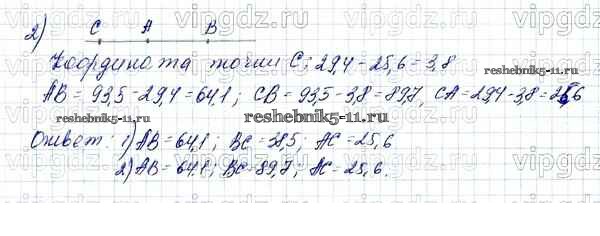 vipgdz.com vipgdz.com vipgdz.com
2) C A B
Координата точки C: 29,4-25,6=3,8
AB = 93,5-29,4=64,1; CB = 93,5-3,8=89,7, CA=29,4-3,8=25,6
reshebnik5-11.ru
reshebnik5-11.ru
Ответ: 1) AB=64,1; BC=38,5; AC=25,6
2) AB=64,1; BC=89,7; AC=25,6.
vipgdz.com vipgdz.com vipgdz.com